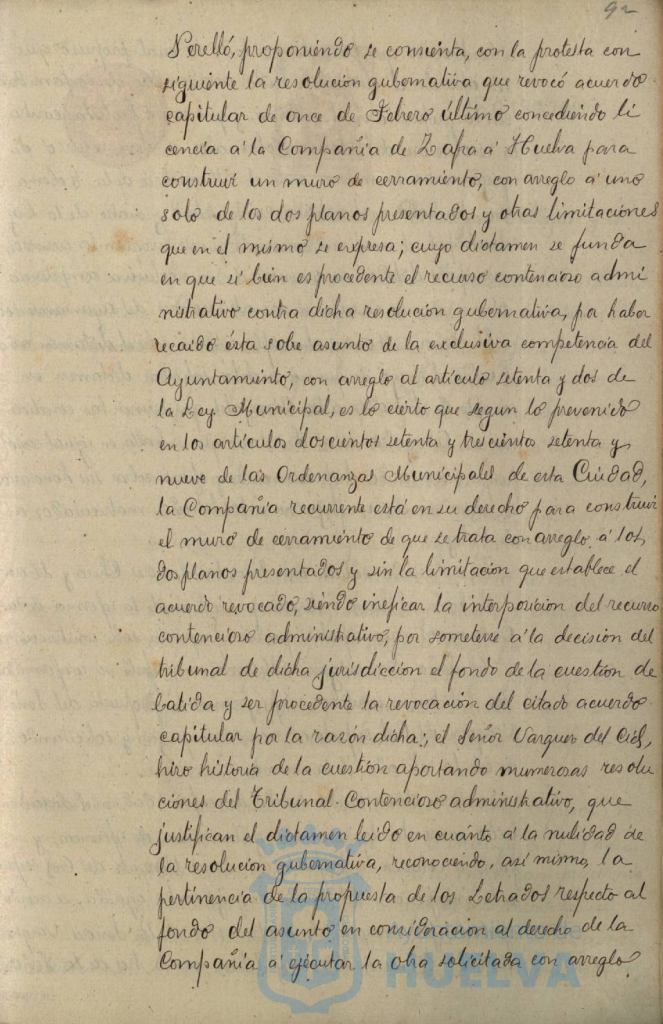 92
Perelló, proponiendo se consienta, con la protesta con
siguiente la resolución gubernativa que revocó acuerdo
capitular de once de Febrero último concediendo li
cencia á la Compañia de Zafra á Huelva para
construir un muro de cerramiento, con arreglo á uno
solo de los dos planos presentados y otras limitaciones
que en el mismo se expresa; cuyo dictamen se funda
en que si bien es procedente el recurso contencioso admi
nistrativo contra dicha resolución gubernativa, por haber
recaido ésta sobre asunto de la exclusiva competencia del
Ayuntamiento, con arreglo al artículo setenta y dos de
la Ley Municipal, es lo cierto que segun lo prevenido
en los artículos doscientos setenta y trescientos setenta y
nueve de las Ordenanzas Municipales de esta Ciudad,
la Compañia recurrente está en su derecho para construir
el muro de cerramiento de que se trata con arreglo á los
dos planos presentados y sin la limitacion que establece el
acuerdo revocado, siendo ineficaz la interposicion del recurso
contencioso administrativo, por someterse á la decisión del
tribunal de dicha jurisdiccion el fondo de la cuestión de
batida y ser procedente la revocación del citado acuerdo
capitular por la razón dicha; el Señor Vazquez del Cid,
hizo historia de la cuestión aportando numerosas resolu
ciones del Tribunal Contencioso administrativo, que
justifican el dictamen leido en cuánto á la nulidad de
la resolucion gubernativa, reconociendo, asi mismo, la
pertinencia de la propuesta de los Letrados respecto al
fondo del asunto en consideracion al derecho de la
Compañia á ejecutar la obra solicitada con arreglo
HUELVA